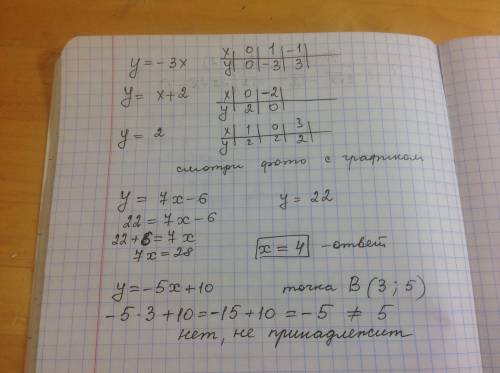 y = -3x   x | 0 | 1 | -1
y | 0 | -3 | 3
y = x+2   x | 0 | -2
y | 2 | 0
y = 2   x | 1 | 0 | 3
y | 2 | 2 | 2
смотри фото с графиком
y = 7x-6   y = 22
22 = 7x-6
22+6=7x   x = 4 - ответ
7x=28
y=-5x+10   точка В (3; 5)
-5·3+10=-15+10 = -5 ≠ 5
нет, не принадлежит